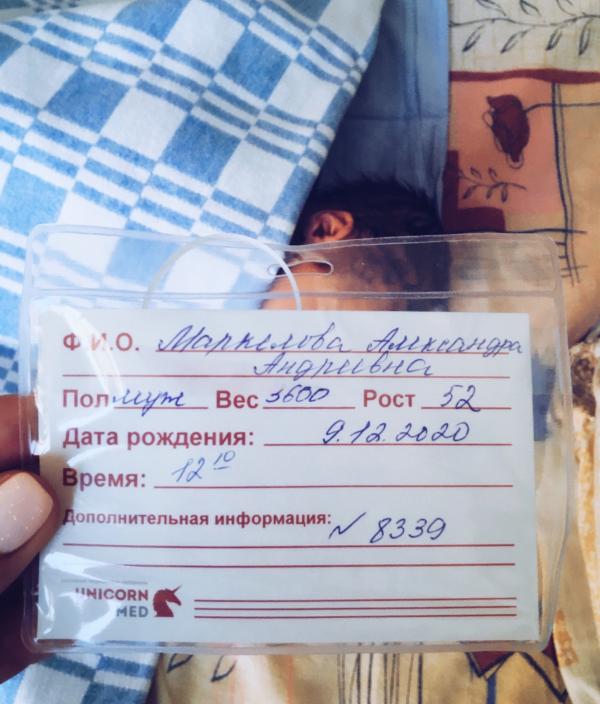 Ф.И.О. Маркелова Александра
Андреевна
Пол муж Вес 3600 Рост 52
Дата рождения: 9.12.2020
Время: 12¹⁰
Дополнительная информация:
N 8339
UNICORN
MED